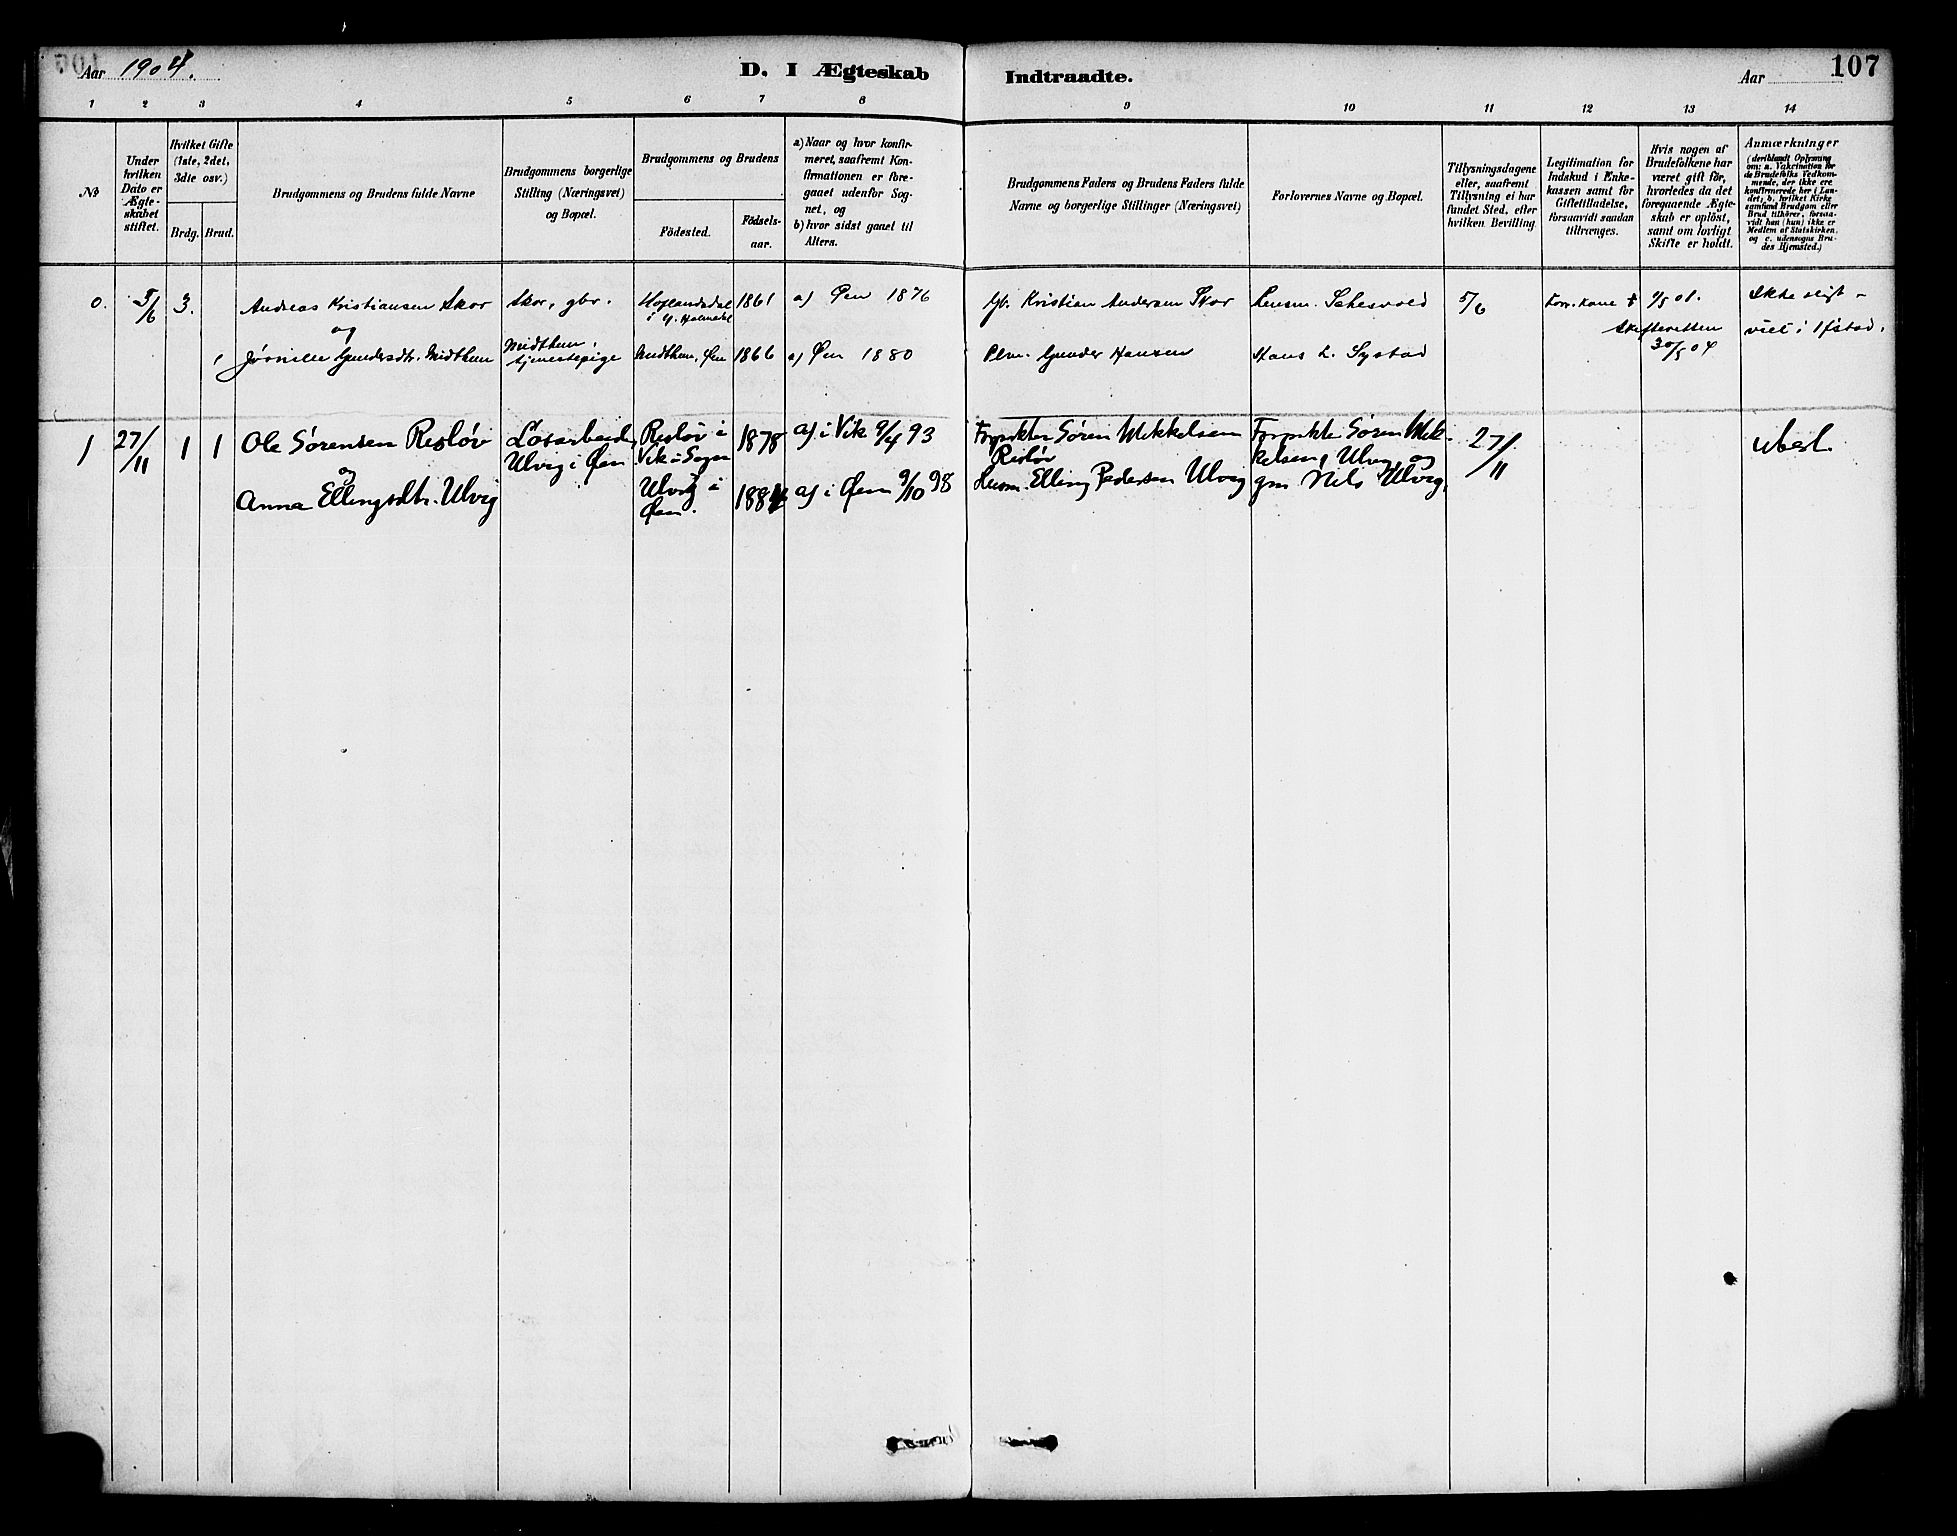 Aar 1904.
D. I Ægteskab Indtraadte.
Aar
107
1 2 3 4 5 6 7 8 9 10 11 12 13 14
No
Under hvilken Dato er Ægteskabet stiftet.
Hvilket Gifte (1ste, 2det, 3die osv.)
Brdg. Brud.
Brudgommens og Brudens fulde Navne
Brudgommens borgerlige Stilling (Næringsvei) og Bopæl.
Brudgommens og Brudens
Födested.
Födselsaar.
a) Naar og hvor konfirmeret, saafremt Konfirmationen er foregaaet udenfor Sognet, og
b) hvor sidst gaaet til Alters.
Brudgommens Faders og Brudens Faders fulde Navne og borgerlige Stillinger (Næringsvei)
Forlovernes Navne og Bopæl.
Tillysningsdagene eller, saafremt Tillysning ei har fundet Sted, efter hvilken Bevilling.
Legitimation for Indskud i Enkekassen samt for Giftetilladelse, forsaavidt saadan tiltrænges.
Hvis nogen af Brudefolkene har været gift för, hvorledes da det foregaaende Ægteskab er oplöst, samt om lovligt Skifte er holdt.
Anmærkninger
(deriblandt Oplysning om: a. Vakcination for de Brudefolks Vedkommende, der ikke ere konfirmerede her i Landet; b. hvilket Kirkesamfund Brudgom eller Brud tilhörer, forsaavidt han (hun) ikke er Medlem af Statskirken, og c. udensogns Brudes Hjemsted.)
0. 5/6 3. Andreas Kristiansen Skor Skor, gbr. 1861 a) Øen 1876 Gb. Kristian Andersen Skor Lensm. 5/6 Forr. kone † 9/5 01. Ikke
og Skifteretten 30/5 04 viet i
1 Gundersdtr. Midthun Midthun, tjenestepige Midthun, Øen 1866 a) Øen 1880 Gunder Hansen Hans L. Systad
1 27/11 1 1 Ole Sørensen Resløv Ulvig i Øen Resløv i Vik i Sogn 1878 a) i Vik 9/4 93 Søren Mikkelsen Resløv Søren Mikkelsen, Ulvig og 27/11
og
Anna Ellingsdtr. Ulvig Ulvig i Øen. 1884 a) i Øen 9/10 98 Elling Pedersen Ulvig gm Nils Ulvig.